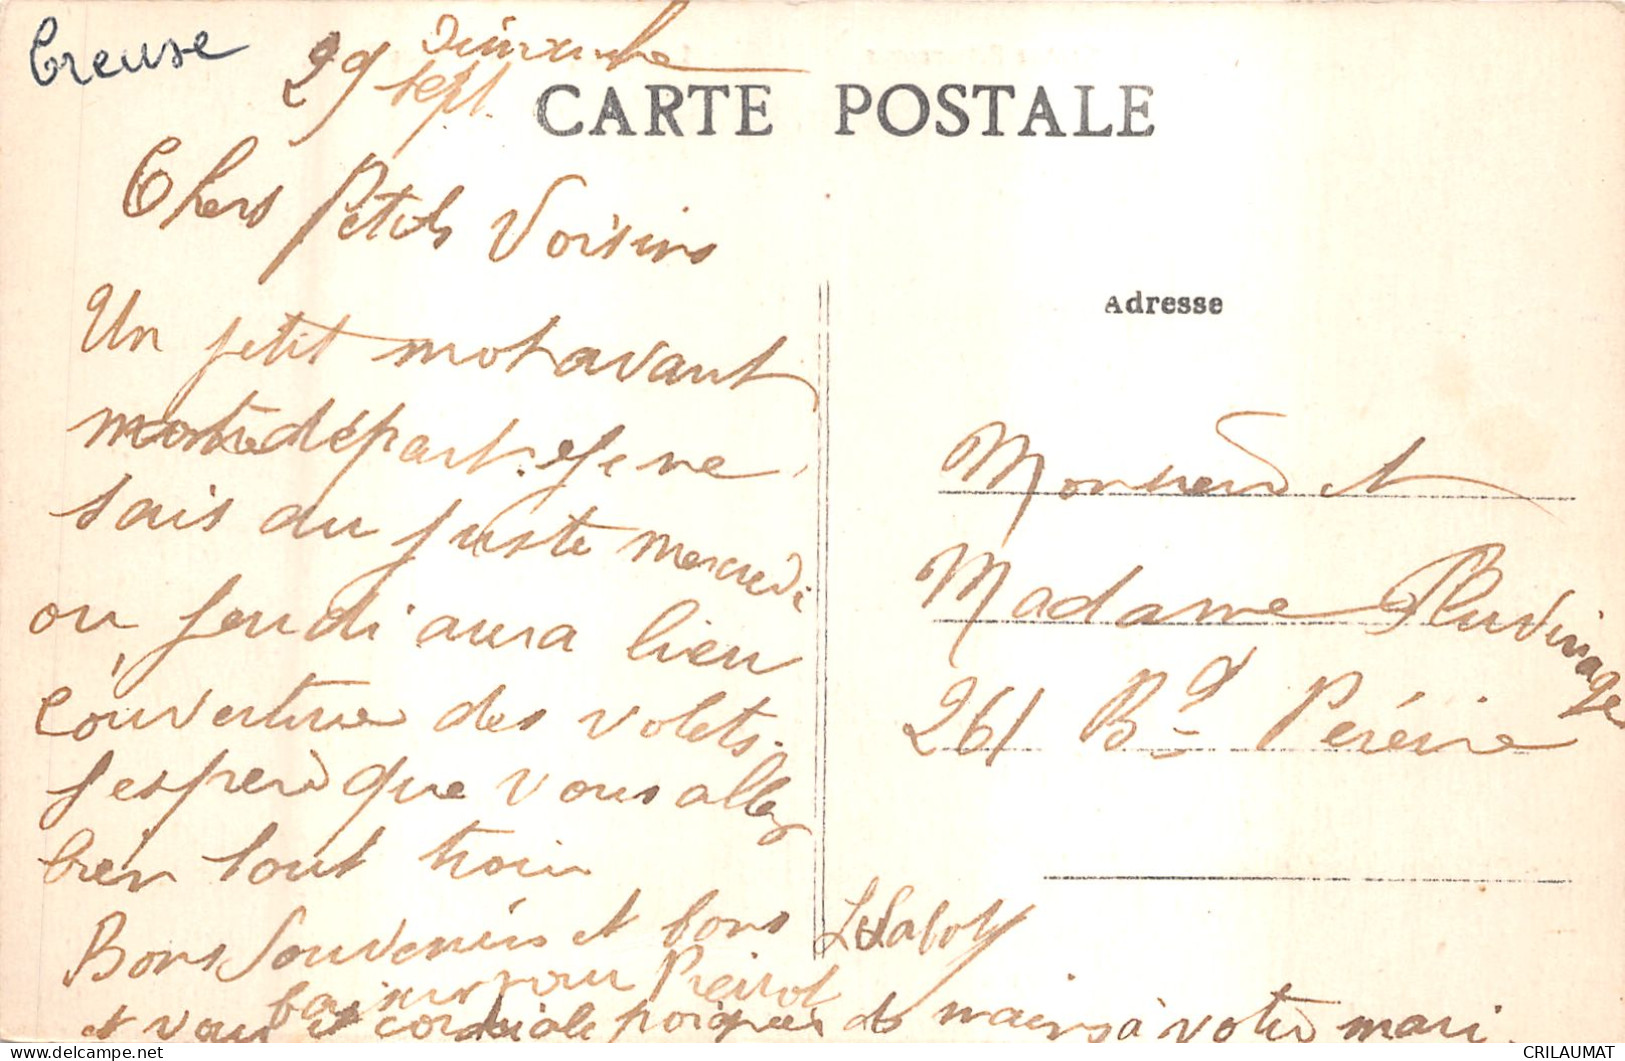 Creuse
Dimanche
29 sept.
CARTE POSTALE
Chers Petits Voisins
Un petit mot avant
notre départ. Je ne
sais au juste mercredi
ou jeudi aura lieu
l'ouverture des volets.
J'espere que vous allez
bien tout trois
Bons Souvenirs et bons
baisers pour Pierrot
et vous et cordiale poignée de mains à votre mari.
Adresse
Monsieur et
Madame Pluvinage
261 Bd Péreire
CRILAUMAT